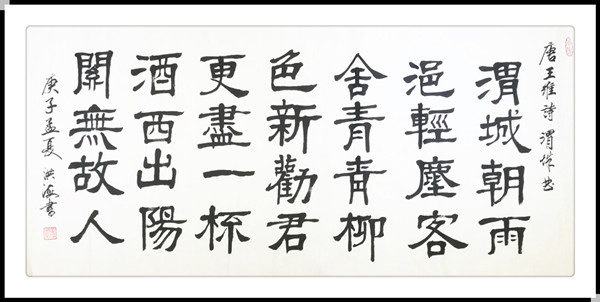 唐王維詩 渭城曲
渭城朝雨
浥輕塵客
舍青青柳
色新勸君
更盡一杯
酒西出陽
關無故人
庚子孟夏 洪海書